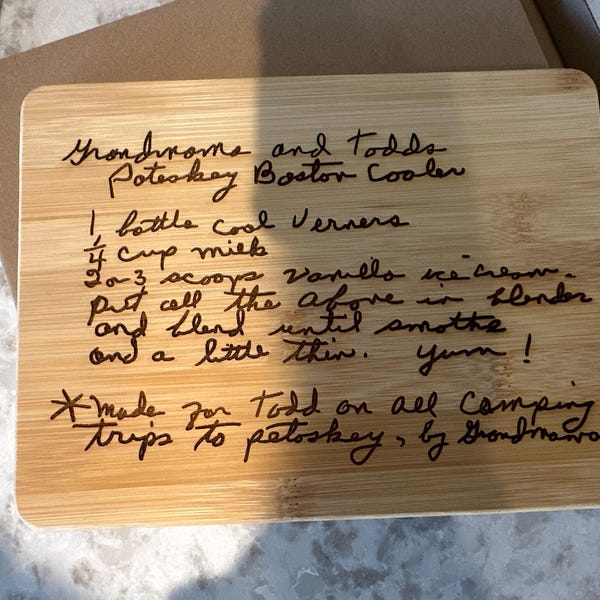 Grandmama and Todds
Poteskey Boston Cooler
1 bottle cool Verners
1/4 cup milk
2 or 3 scoops vanilla ice cream.
put all the above in blender
and blend until smothe
and a little thin. Yum!
* Made for Todd on all Camping
trips to petoskey, by Grandmama